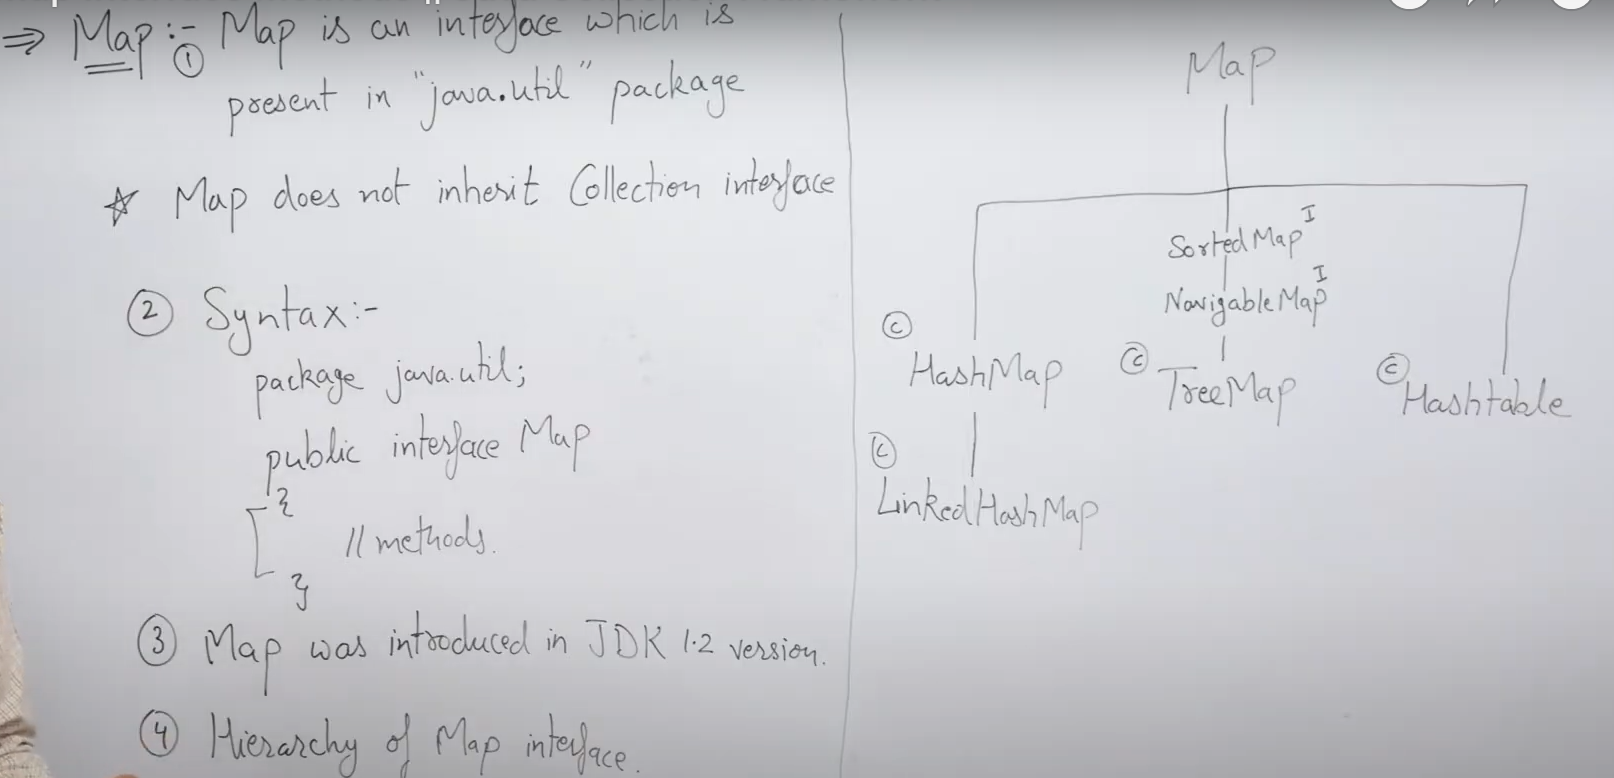 ⇒ Map :- ① Map is an interface which is
present in "java.util" package
☆ Map does not inherit Collection interface
② Syntax :-
package java.util;
public interface Map
{
// methods.
}
③ Map was introduced in JDK 1.2 version.
④ Hierarchy of Map interface.
Map
SortedMap I
NavigableMap I
© HashMap
© TreeMap
© Hashtable
© LinkedHashMap